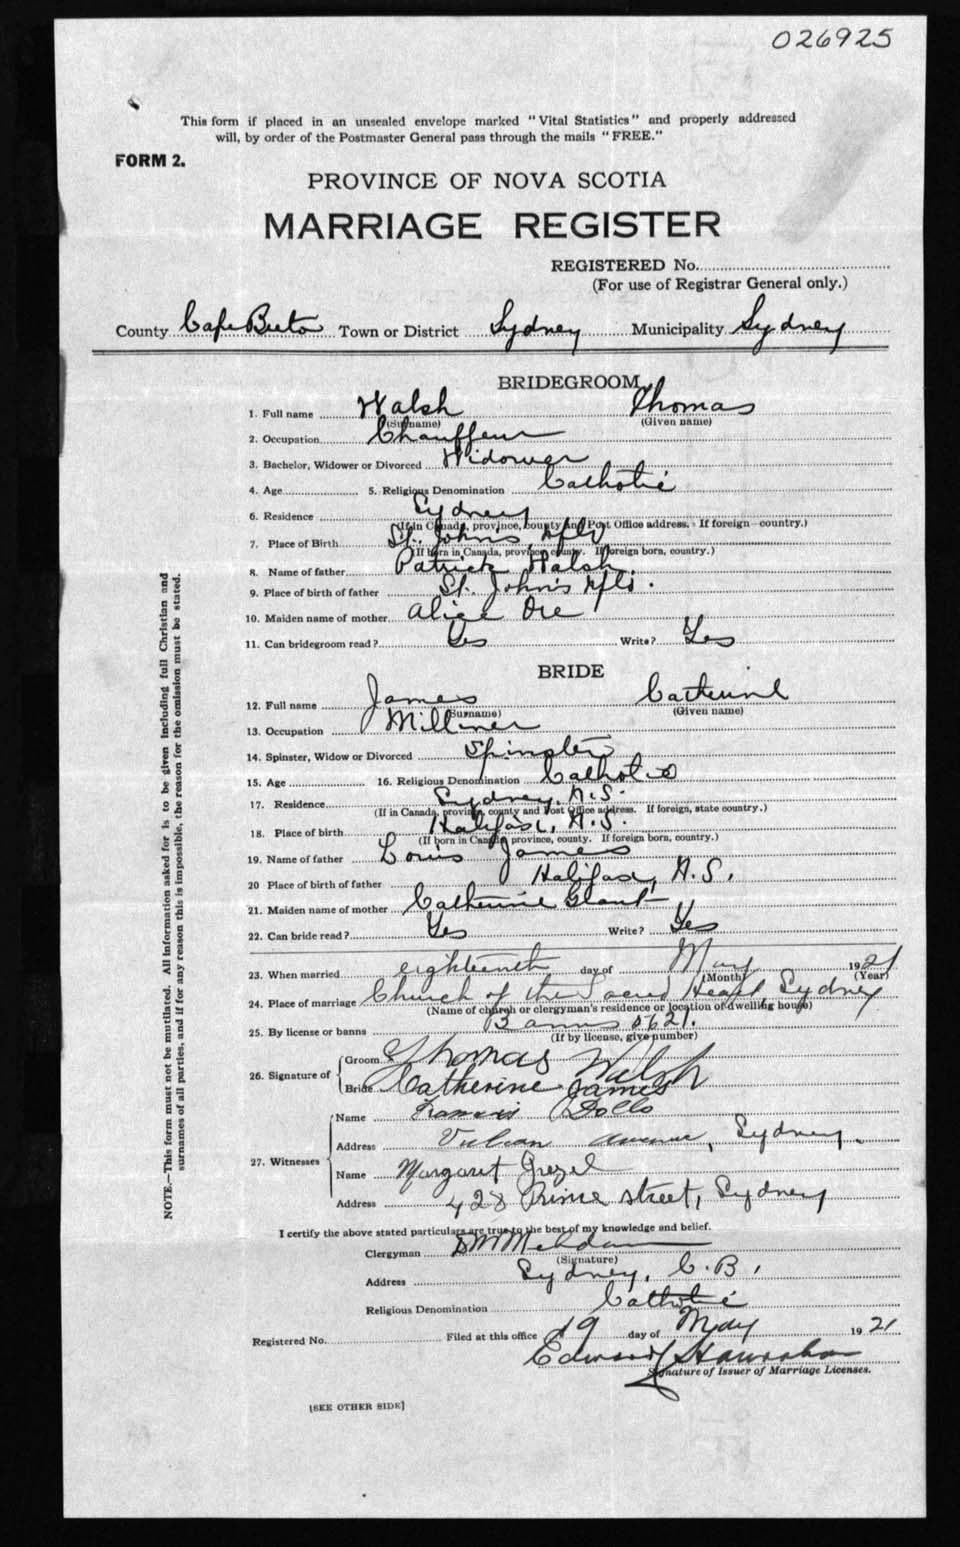 026925
This form if placed in an unsealed envelope marked "Vital Statistics" and properly addressed
will, by order of the Postmaster General pass through the mails "FREE."
FORM 2.
PROVINCE OF NOVA SCOTIA
MARRIAGE REGISTER
REGISTERED No.
(For use of Registrar General only.)
County Cape Breton Town or District Sydney Municipality Sydney
BRIDEGROOM
1. Full name Walsh Thomas
(Surname) (Given name)
2. Occupation Chauffeur
3. Bachelor, Widower or Divorced Widower
4. Age 5. Religious Denomination Catholic
6. Residence Sydney
(If in Canada, province, county and Post Office address. If foreign country.)
7. Place of Birth St. John's Nfld
(If born in Canada, province, county. If foreign born, country.)
8. Name of father Patrick Walsh
9. Place of birth of father St. John's Nfld.
10. Maiden name of mother Alice
11. Can bridegroom read? Yes Write? Yes
BRIDE
12. Full name James Catherine
(Surname) (Given name)
13. Occupation Milliner
14. Spinster, Widow or Divorced Spinster
15. Age 16. Religious Denomination Catholic
17. Residence Sydney, N.S.
(If in Canada, province, county and Post Office address. If foreign, state country.)
18. Place of birth Halifax, N.S.
(If born in Canada province, county. If foreign born, country.)
19. Name of father Louis James
20 Place of birth of father Halifax, N.S.
21. Maiden name of mother Catherine Grant
22. Can bride read? Yes Write? Yes
23. When married eighteenth day of May 1921
(Month) (Year)
24. Place of marriage Church of the Sacred Heart, Sydney
(Name of church or clergyman's residence or location of dwelling house)
25. By license or banns Banns 5621.
(If by license, give number)
26. Signature of Groom Thomas Walsh
Bride Catherine James
27. Witnesses Name Francis
Address Vulcan Avenue, Sydney.
Name Margaret Grezel
Address 428 Prince street, Sydney
I certify the above stated particulars are true to the best of my knowledge and belief.
Clergyman
(Signature)
Address Sydney, C.B.
Religious Denomination Catholic
Registered No. Filed at this office 19 day of May 1921
Edward
Signature of Issuer of Marriage Licenses.
[SEE OTHER SIDE]
NOTE.—This form must not be mutilated. All information asked for is to be given including full Christian and
surnames of all parties, and if for any reason this is impossible, the reason for the omission must be stated.